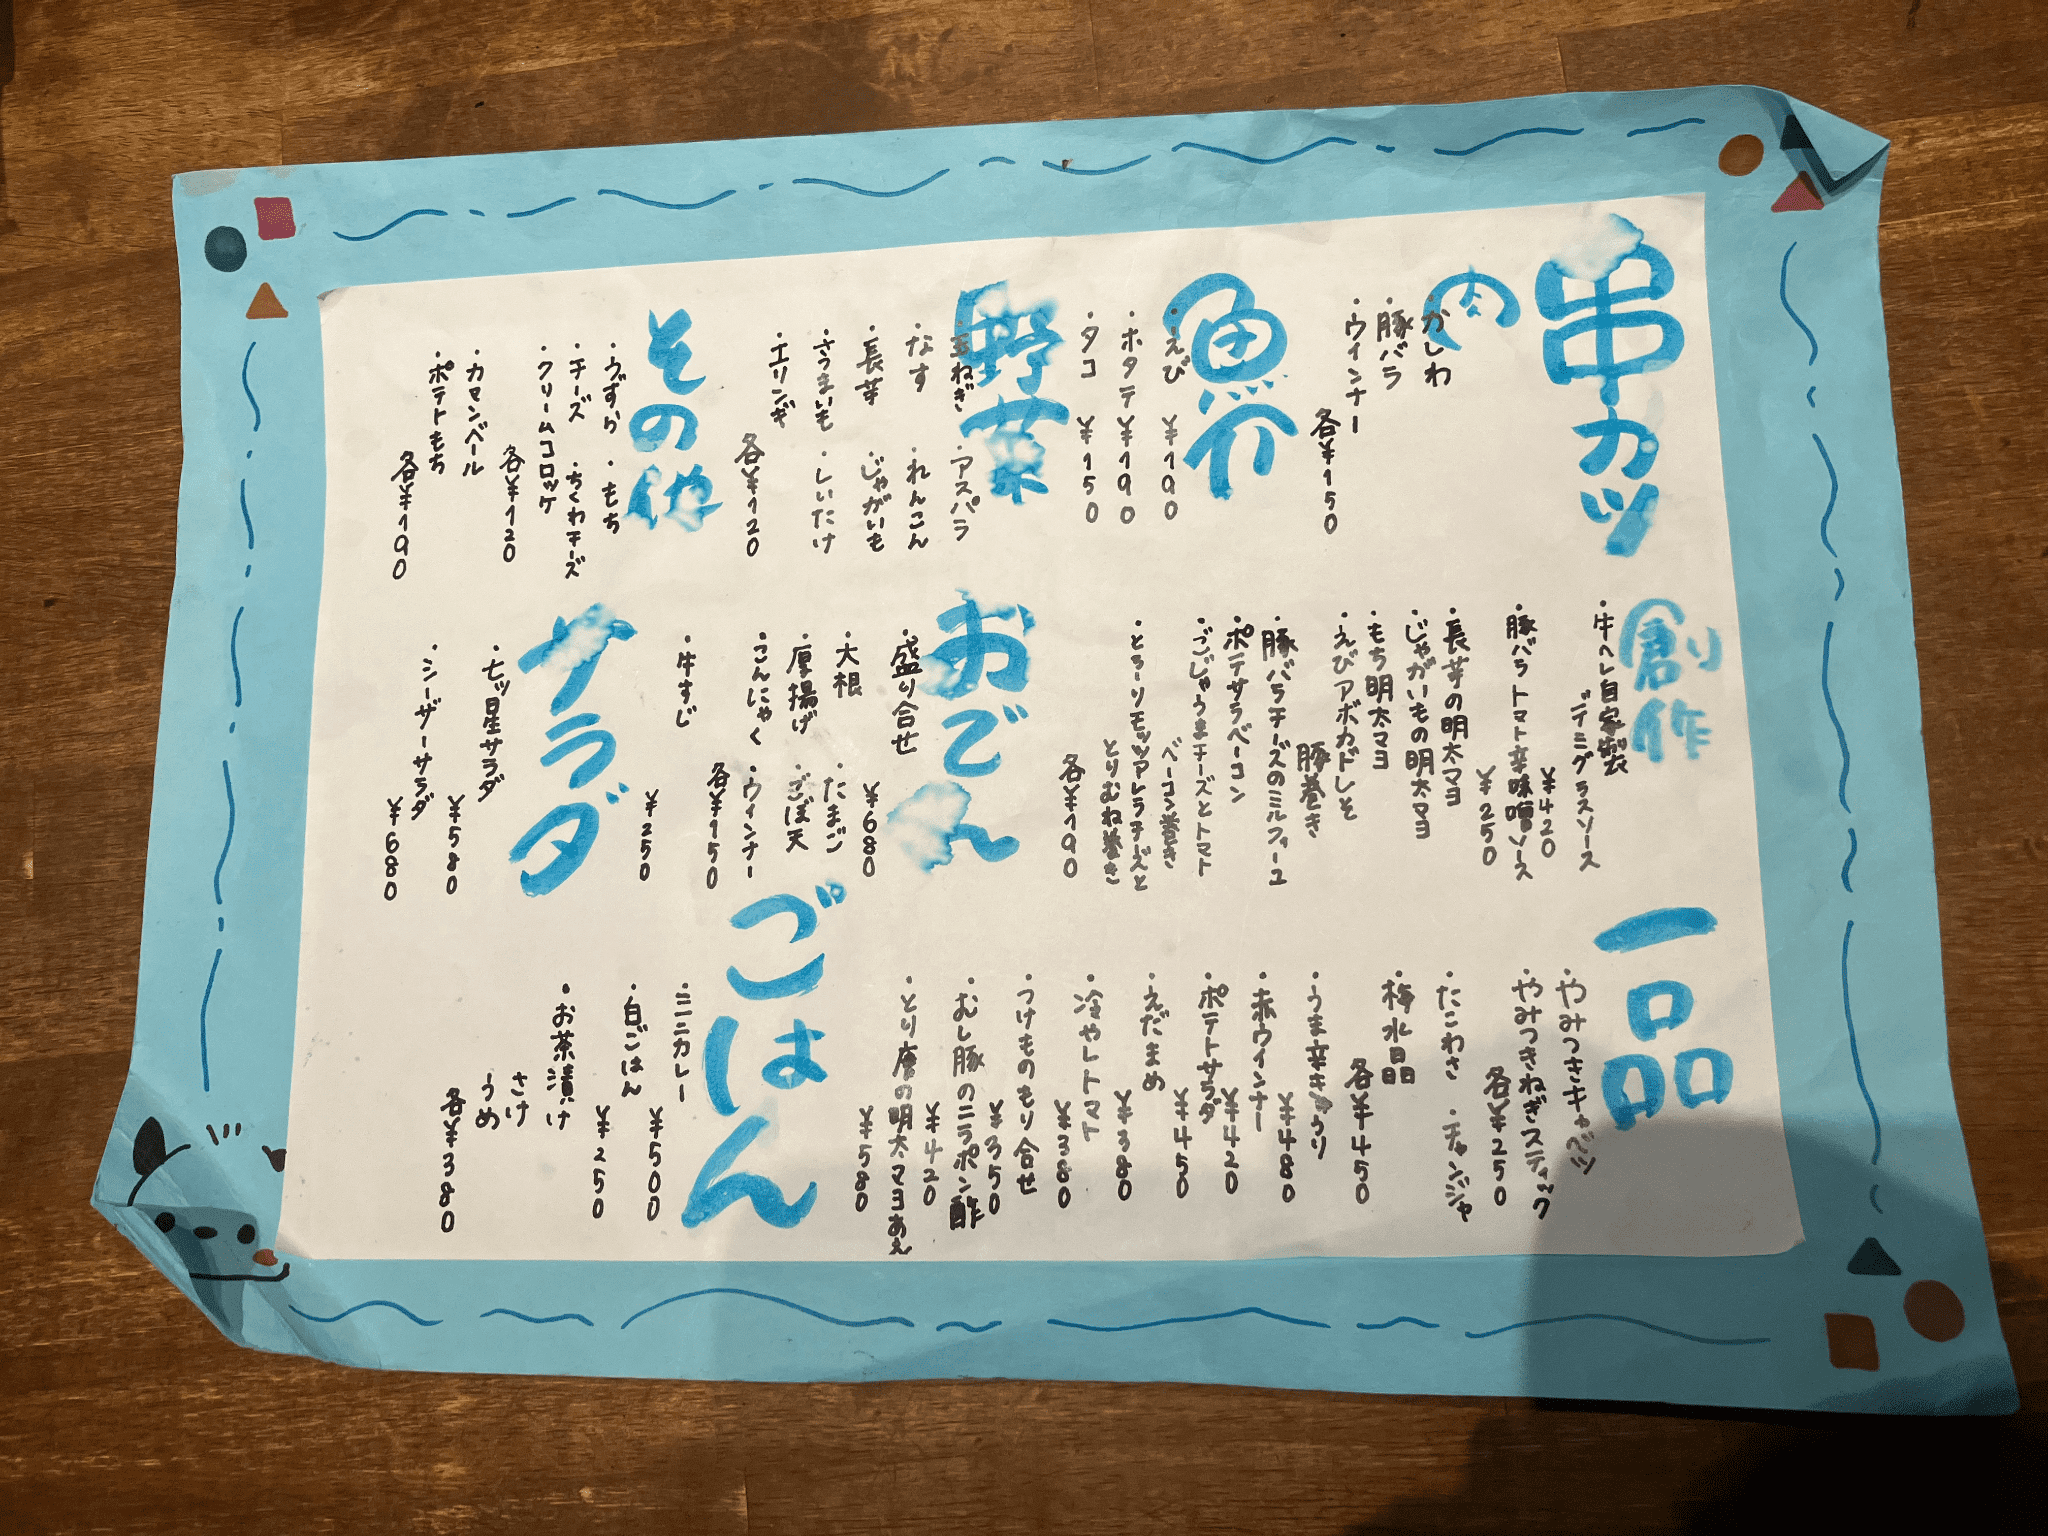 串カツ
肉
・かしわ
・豚バラ
・ウインナー
各¥150
魚介
・えび ¥190
・ホタテ ¥190
・タコ ¥150
野菜
・玉ねぎ ・アスパラ
・なす ・れんこん
・長芋 ・じゃがいも
・さつまいも ・しいたけ
・エリンギ
各¥120
その他
・うずら ・もち
・チーズ ・ちくわチーズ
・クリームコロッケ
各¥120
・カマンベール
・ポテトもち
各¥190
創作
・牛ヘレ自家製
デミグラスソース
¥420
・豚バラトマト辛味噌ソース
¥250
・長芋の明太マヨ
・じゃがいもの明太マヨ
・もち明太マヨ
・えびアボカドしそ
豚巻き
・豚バラチーズのミルフィーユ
・ポテサラベーコン
・ごじゅうまチーズとトマト
ベーコン巻き
・とろーりモッツアレラチーズと
とりむね巻き
各¥190
おでん
・盛り合せ
¥680
・大根 ・たまご
・厚揚げ ・ごぼ天
・こんにゃく ・ウィンナー
各¥150
・牛すじ
¥250
サラダ
・七ッ星サラダ
¥580
・シーザーサラダ
¥680
一品
・やみつきキャベツ
・やみつきねぎスティック
各¥250
・たこわさ ・チャンジャ
・梅水晶
各¥450
・うま辛きゅうり
¥480
・赤ウインナー
¥420
・ポテトサラダ
¥450
・えだまめ
¥380
・冷やしトマト
¥380
・つけものもり合せ
¥350
・むし豚のニラポン酢
¥420
・とり唐の明太マヨあえ
¥580
ごはん
・ミニカレー
¥500
・白ごはん
¥250
・お茶漬け
さけ
うめ
各¥380